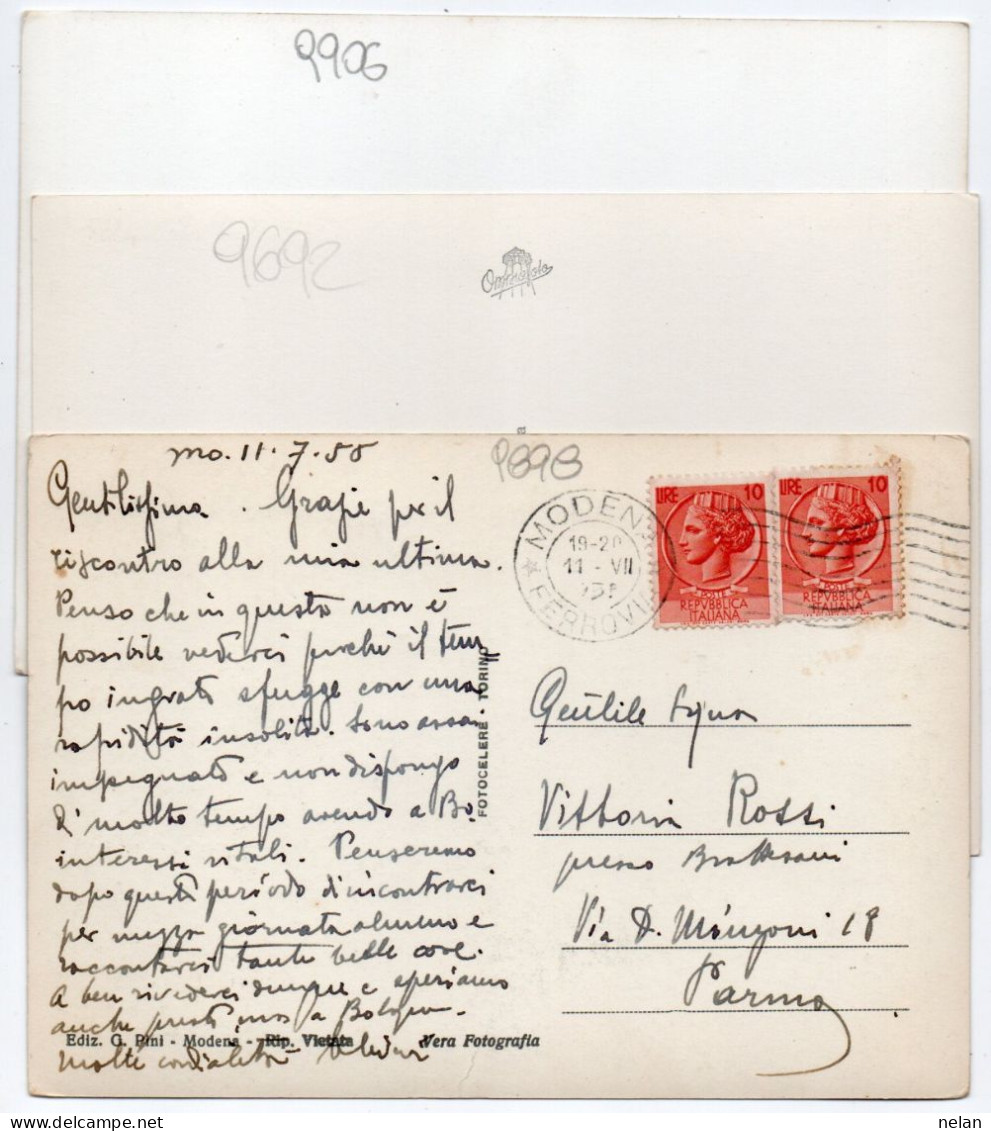 9906
9692
Omniafoto
mo. 11.7.55
9898
Gentilissima. Grazie per il
riscontro alla mia ultima.
Penso che in questa non è
possibile vederci perchè il tem
po ingrato sfugge con una
rapidità insolita. Sono assai
impegnato e non dispongo
di molto tempo avendo a Bo.
interessi vitali. Penseremo
dopo questo periodo di incontrarci
per mezza giornata almeno e
raccontarci tante belle cose.
A ben rivederci dunque e speriamo
anche presto a Bologna.
molte cordialità
LIRE 10
POSTE
REPVBBLICA
ITALIANA
LIRE 10
POSTE
REPVBBLICA
ITALIANA
MODENA
19-20
11 - VII
FERROVIA
FOTOCELERE - TORINO
Gentile Sigra
Vittoria Rossi
presso
Via D. Manzoni 18
Parma
Ediz. G. Pini - Modena - Rip. Vietata Vera Fotografia
delcampe.net
nelan